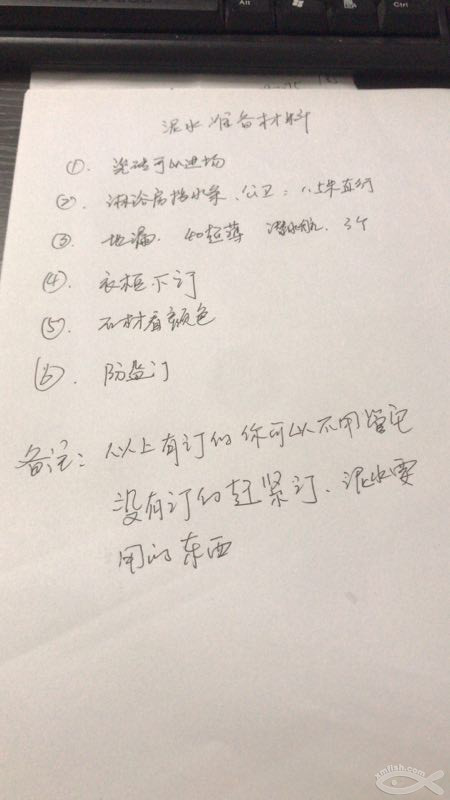 Alt
Ctrl
泥水准备材料
①. 瓷砖可以进场
②. 淋浴房挡水条、公卫：1.5米直行
③. 地漏. 40超薄 潜水艇. 3个
④. 衣柜下订
⑤. 石材看颜色
⑥. 防盗门
备注: 以上有订的你可以不用管它
没有订的赶紧订、泥水要
用的东西
xmfish.com